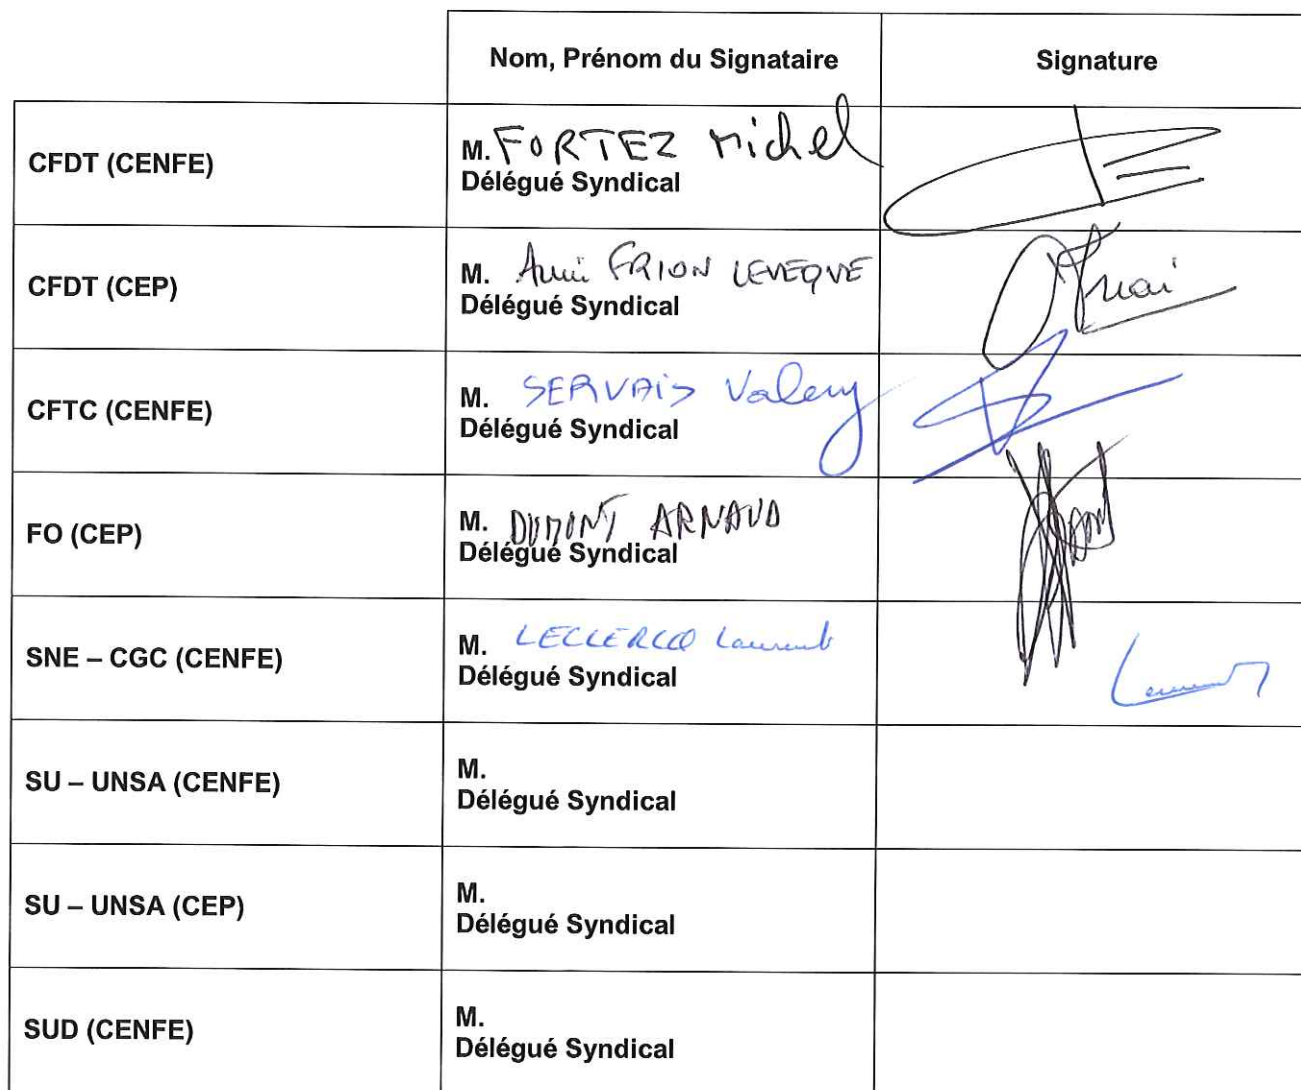 Nom, Prénom du Signataire Signature
CFDT (CENFE)
M. FORTEZ Michel
Délégué Syndical
CFDT (CEP)
M. FRION LEVEQUE
Délégué Syndical
CFTC (CENFE)
M. SERVAIS Valery
Délégué Syndical
FO (CEP)
M. DUMONT ARNAUD
Délégué Syndical
SNE – CGC (CENFE)
M. LECLERCQ Laurent
Délégué Syndical
SU – UNSA (CENFE)
M.
Délégué Syndical
SU – UNSA (CEP)
M.
Délégué Syndical
SUD (CENFE)
M.
Délégué Syndical